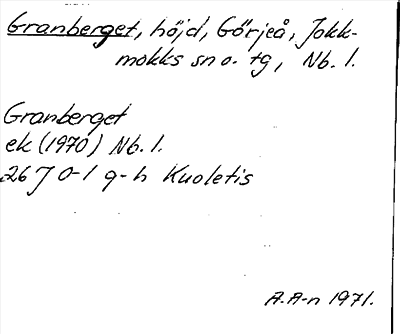 Granberget, höjd, Görjeå, Jokk-
mokks sn o. tg, Nb. l.
Granberget
ek (1970) Nb. l.
26 J 0-1 g-h Kuoletis
A.A-n 1971.